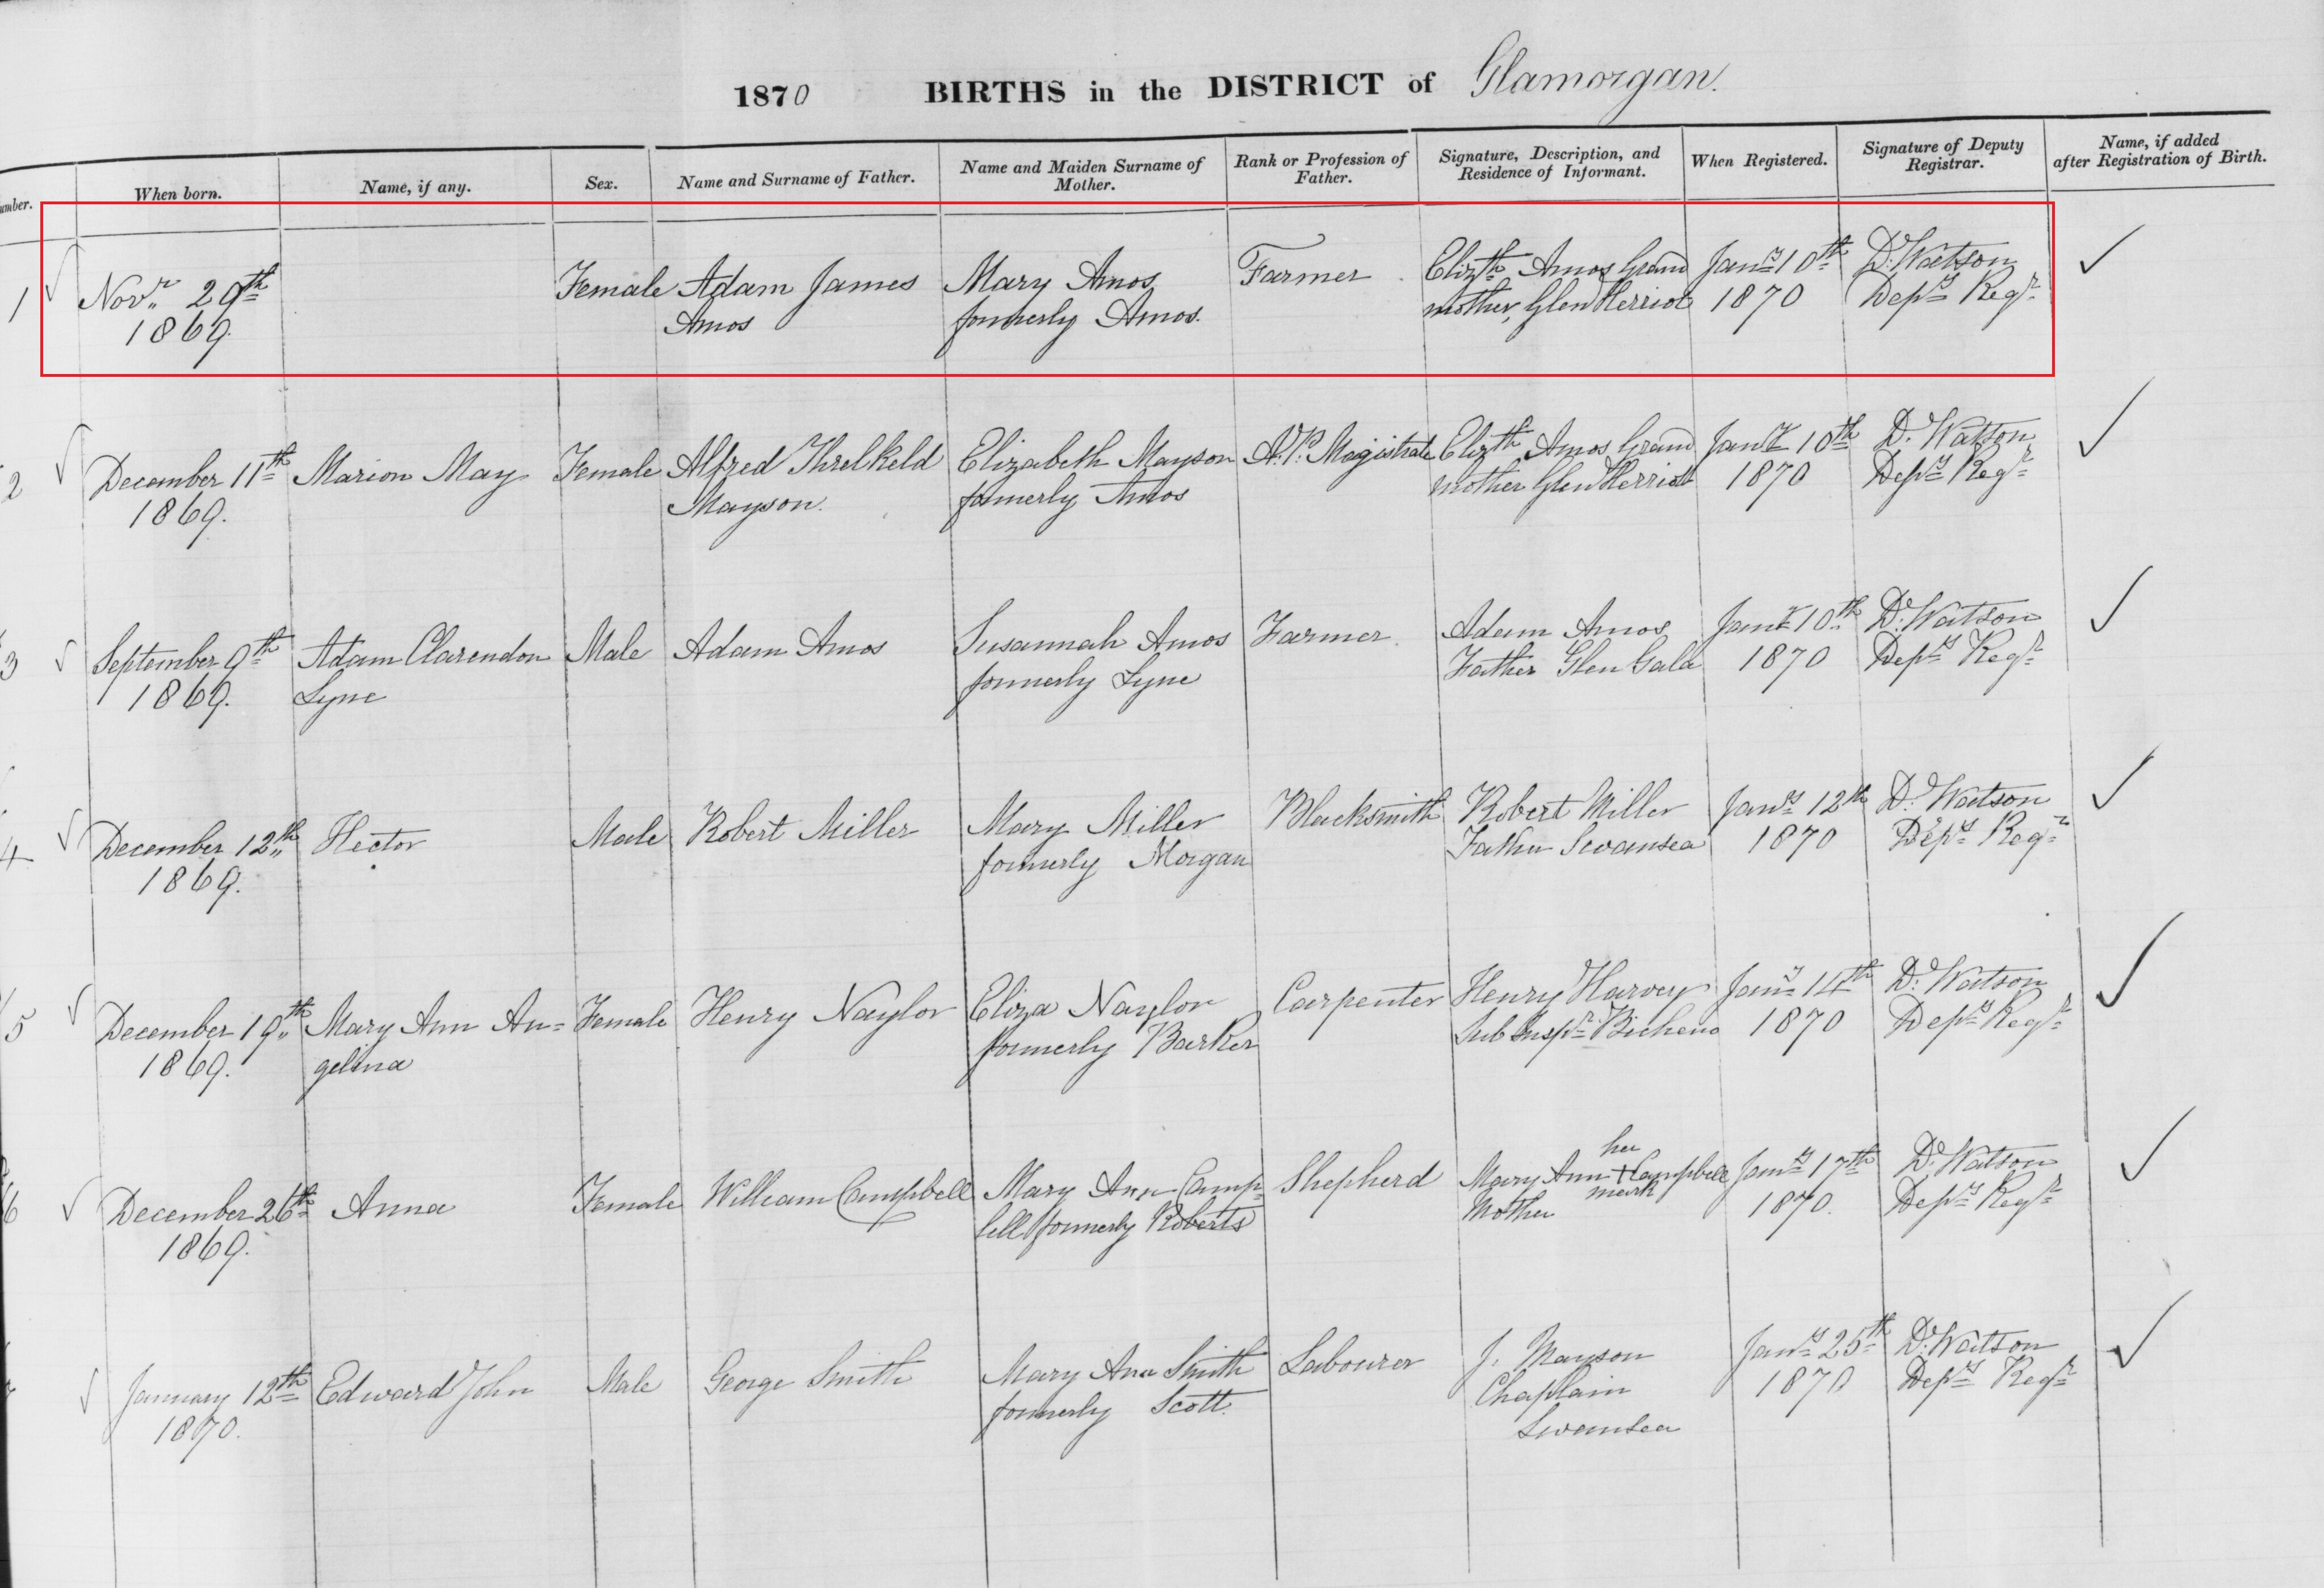 1870 BIRTHS in the DISTRICT of Glamorgan.
Number. When born. Name, if any. Sex. Name and Surname of Father. Name and Maiden Surname of Mother. Rank or Profession of Father. Signature, Description, and Residence of Informant. When Registered. Signature of Deputy Registrar. Name, if added after Registration of Birth.
1 Novr 29th Female Adam James Mary Amos Farmer Elizth Amos Grand Jany 10th D. Watson
1869 Amos formerly Amos. mother, Glen Herriot 1870 Depy Regr
2 December 11th Marion May Female Alfred Threlkeld Elizabeth Mayson A.P. Magistrate Elizth Amos Grand Jany 10th D. Watson
1869. Mayson. formerly Amos mother Glen Herriott 1870 Depy Regr
3 September 9th Adam Clarendon Male Adam Amos Susannah Amos Farmer Adam Amos Jany 10th D. Watson
1869. Lyne formerly Lyne Father Glen Gala 1870 Depy Regr
4 December 12th Hector Male Robert Miller Mary Miller Blacksmith Robert Miller Jany 12th D. Watson
1869. formerly Morgan Father Swansea 1870 Depy Regr
5 December 19th Mary Ann An= Female Henry Naylor Eliza Naylor Carpenter Henry Harvey Jany 14th D. Watson
1869. gelina formerly Barker Sub Inspr Bicheno 1870 Depy Regr
her
6 December 26th Anna Female William Campbell Mary Ann Camp= Shepherd Mary Ann + Campbell Jany 17th D. Watson
mark
1869. bell formerly Roberts Mother 1870. Depy Regr
January 12th Edward John Male George Smith Mary Ann Smith Labourer J. Mayson Jany 25th D. Watson
1870. formerly Scott. Chaplain 1870 Depy Regr
Swansea